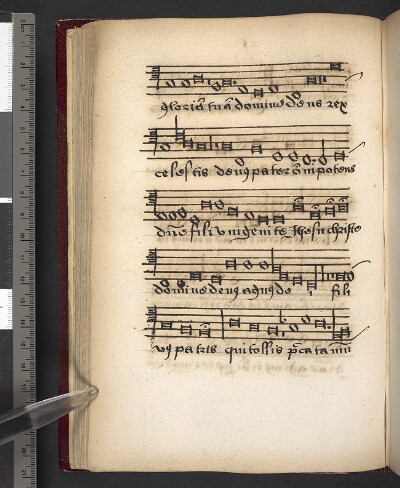 gloriā tuā domine deus rex
celestis deus pater ōmipotens
dn̄e fili unigenite Jhesu christe
domine deus agnus de fili
us patris qui tollis pc̄cata mū